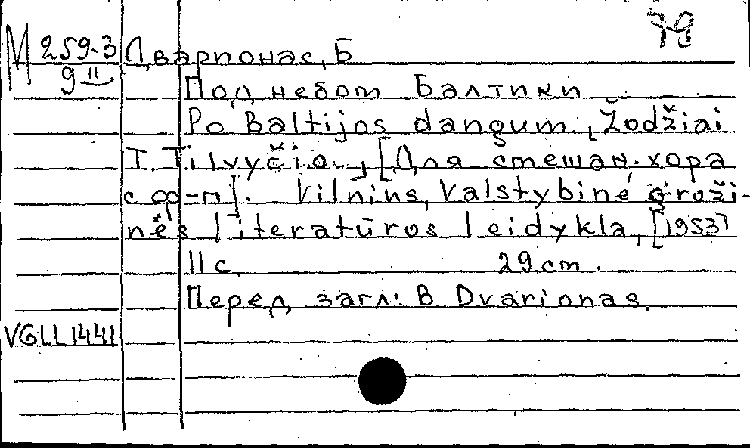 79
М 259-3 Дварионас, Б
9 II
Под небом Балтики
Po Baltijos dangum, Žodžiai
T. Tilvyčio., [Для смешан. хора
с ф-п]. Vilnius, Valstybinė groži-
nės literatūros leidykla, [1953]
11 с. 29 cm.
Перед загл: B Dvarionas.
VGLL 1441